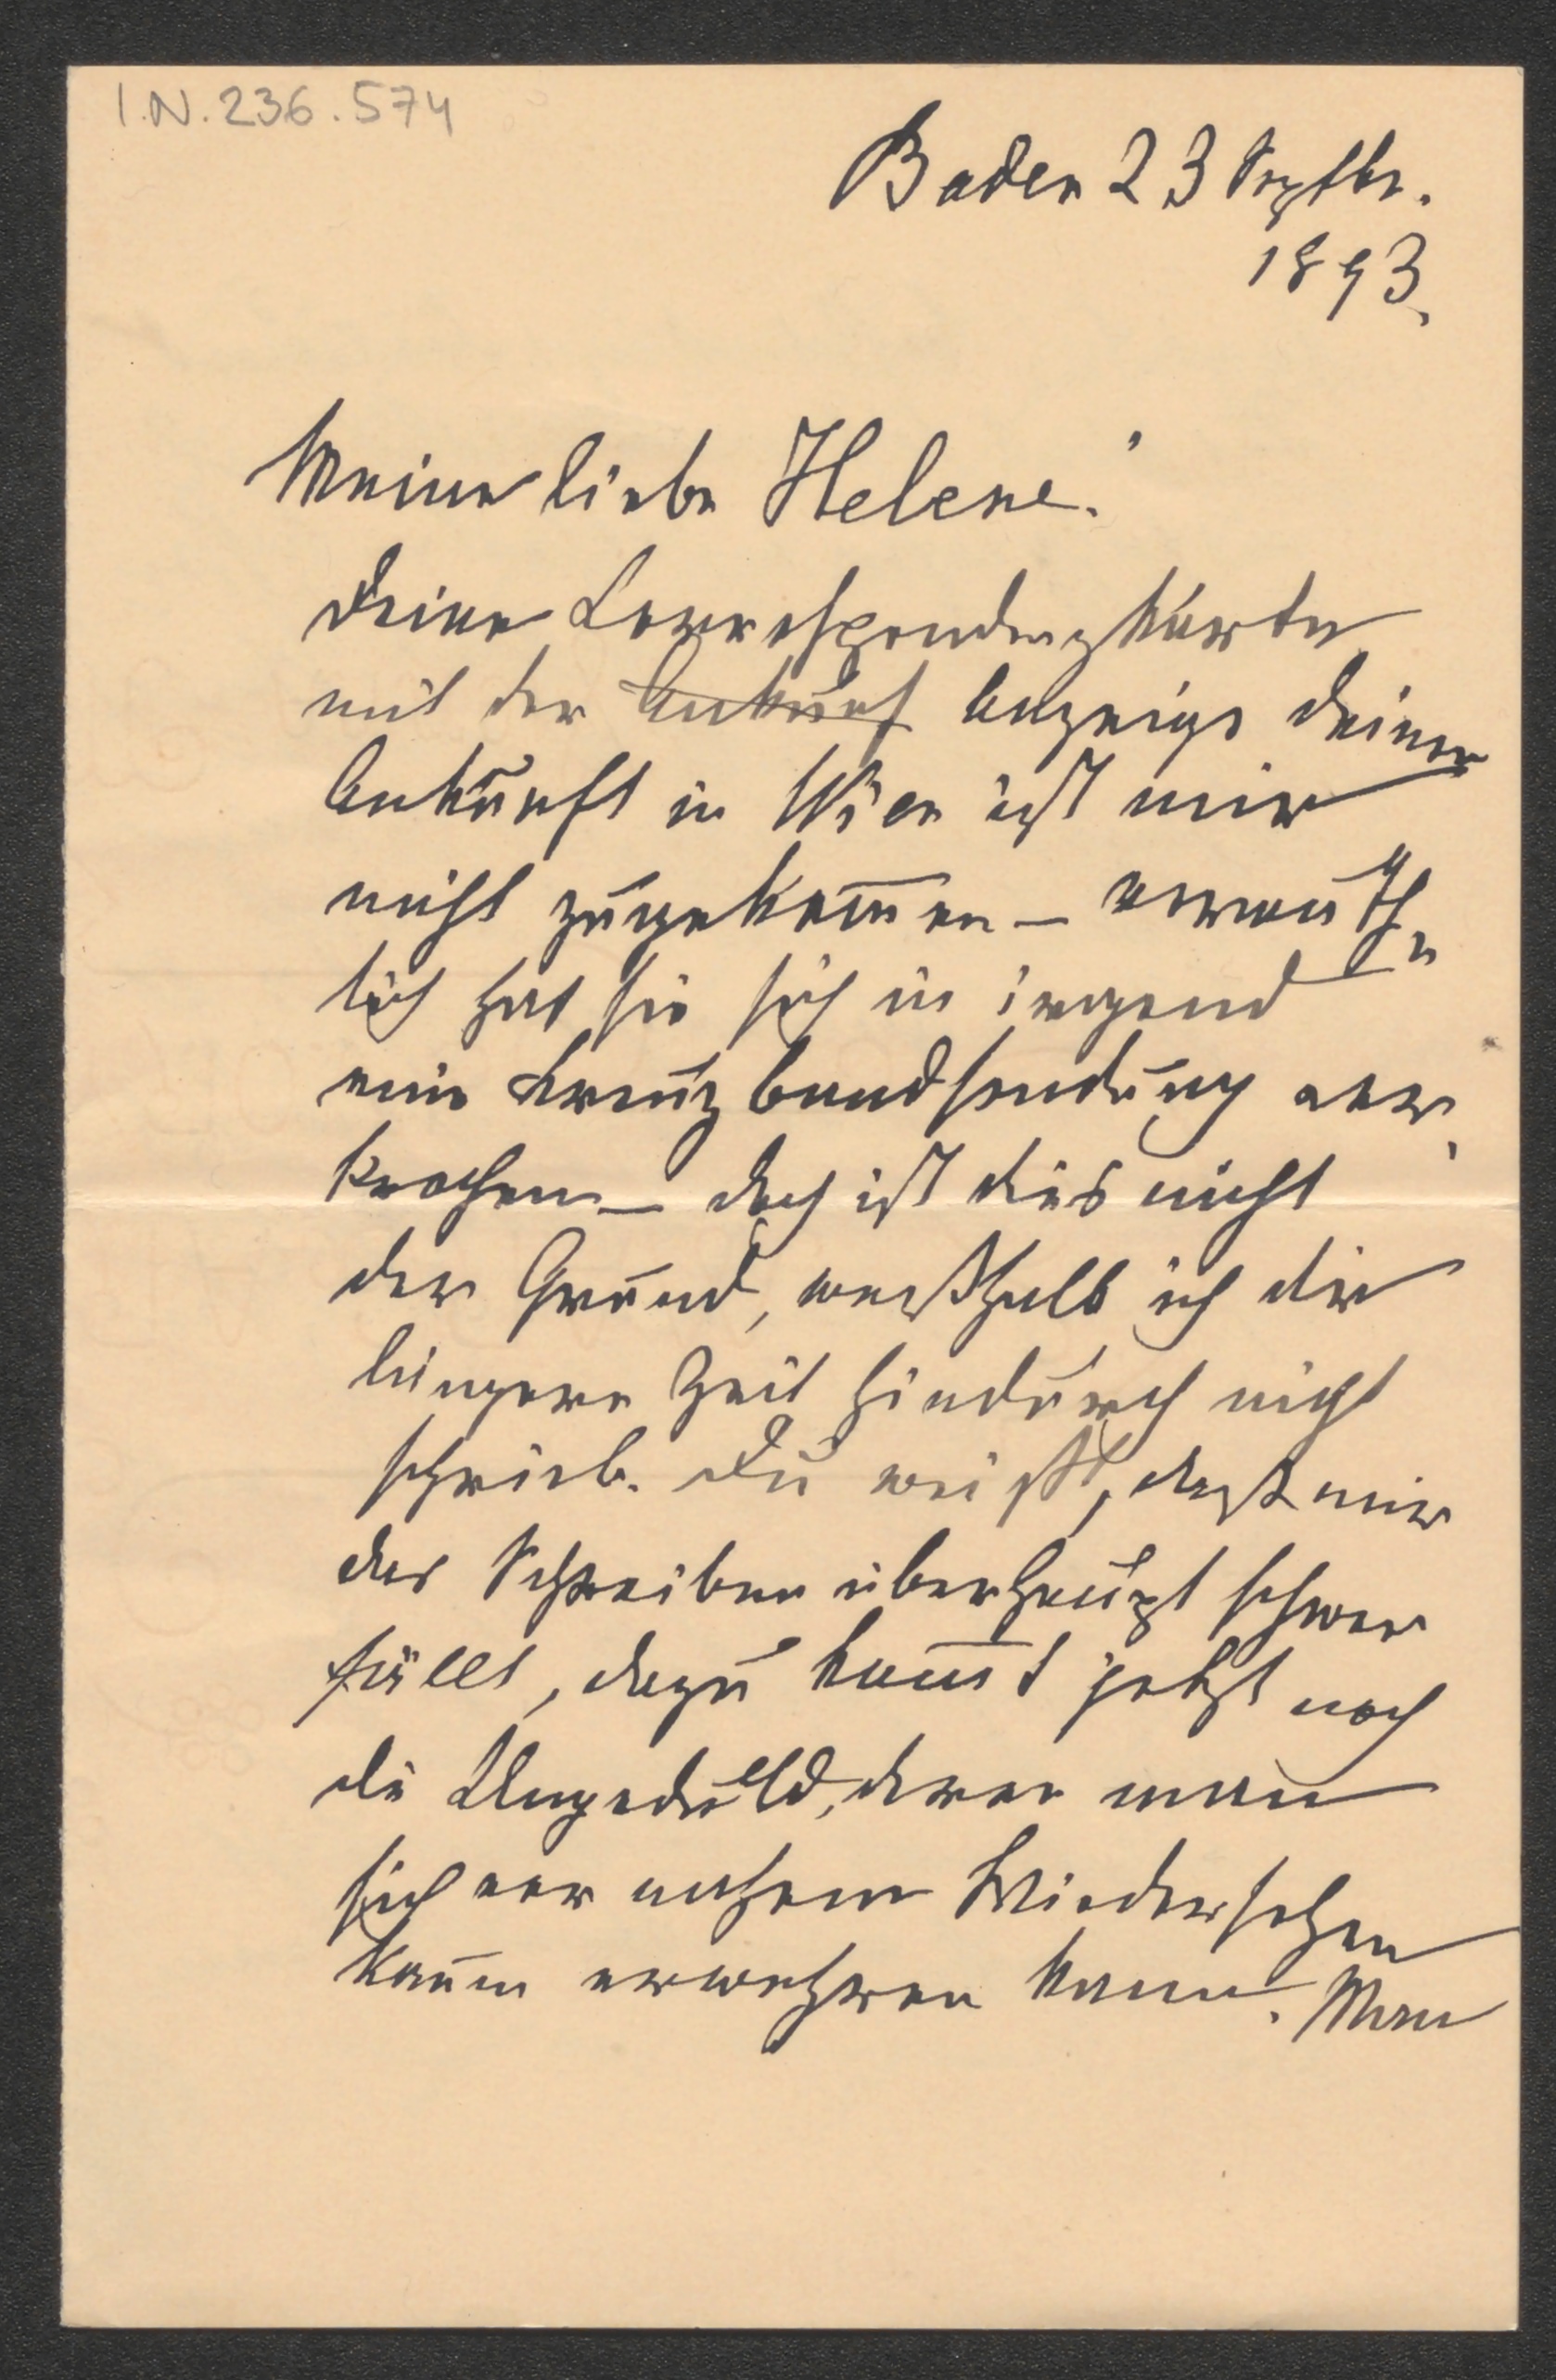 I.N. 236.574
Baden 23 Septbr.
1893.
Meine liebe Helene!
Deine Correspondenzkarte
mit der Ankunf Anzeige deiner
Ankunft in Wien ist mir
nicht zugekom̅en – vermuth-
lich hat sie sich in irgend
eine Kreuzbandsendung ver-
krochen – doch ist dies nicht
der Grund, weßhalb ich dir
längere Zeit hindurch nicht
schrieb. Du weißt, daß mir
das Schreiben überhaupt schwer
fällt, dazu kom̅t jetzt noch
die Ungeduld, deren man
sich vor nahem Wiedersehen
kaum erwehren kann. Man